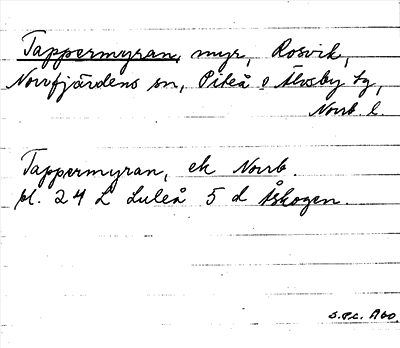 Tappermyran, myr, Rosvik,
Norrfjärdens sn, Piteå o Älvsby tg,
Norrb. l.
Tappermyran, ek Norrb.
bl. 24 L Luleå 5 d Åskogen.
S.P.C. 1960